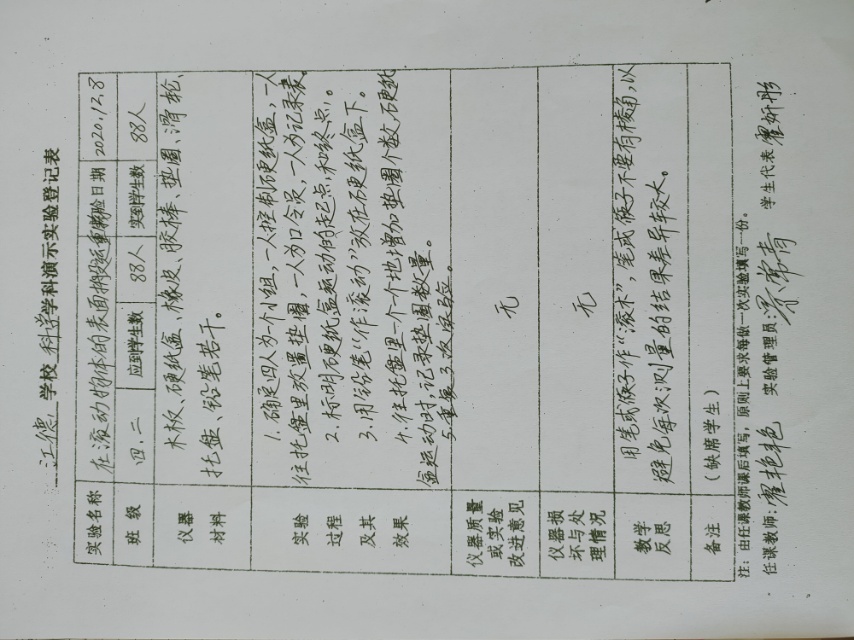 江德 学校 科学 学科演示实验登记表
实验名称 在滚动物体的表面搬运重物 实验日期 2020.12.8
班 级 四.二 应到学生数 88人 实到学生数 88人
仪器 材料 木板、硬纸盒、橡皮、胶棒、垫圈、滑轮、
托盘、铅笔若干。
实验 过程 及其 效果
1.确定四人为一个小组,一人控制硬纸盒,一人
往托盘里放置垫圈,一人为口令员,一人为记录表。
2.标明硬纸盒运动的起点和终点。
3.用铅笔“作滚动”放在硬纸盒下。
4.往托盘里一个一个地增加垫圈个数,硬纸
盒运动时,记录垫圈数量。
5.重复3次实验。
仪器质量 或实验 改进意见 无
仪器损 坏与处 理情况 无
教学 反思 用笔或棍子作“滚木”,笔或棍子不要有棱角,以
避免每次测量的结果差异较大。
备注 (缺席学生)
注:由任课教师课后填写,原则上要求每做一次实验填写一份。
任课教师: 翟艳艳 实验管理员 学生代表 翟妍彤